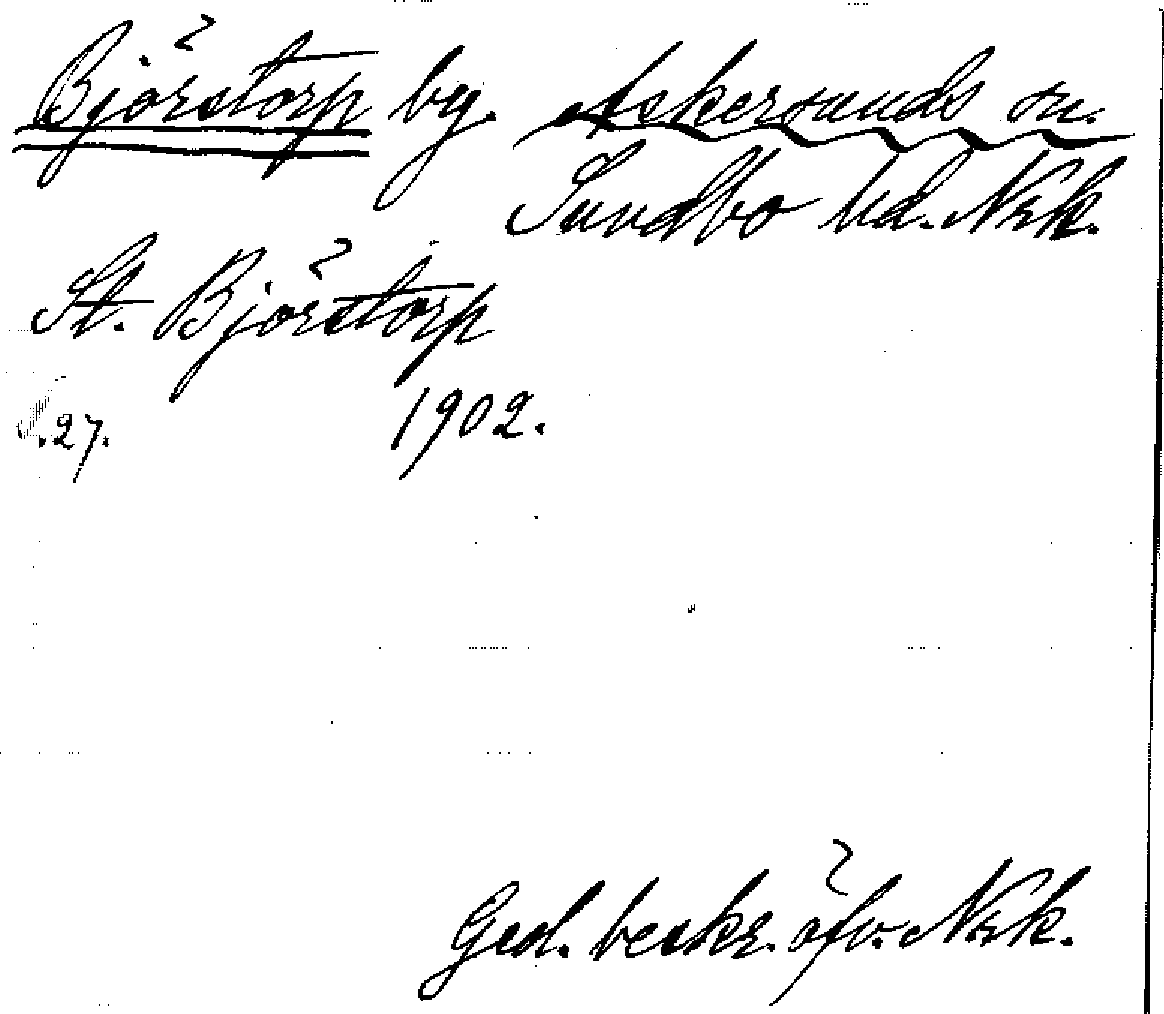 Björstorp by. Askersunds sn.
Sundbo hd. Nrk.
St. Björstorp
S.27. 1902.
Ged. beskr. öfv. Nrk.